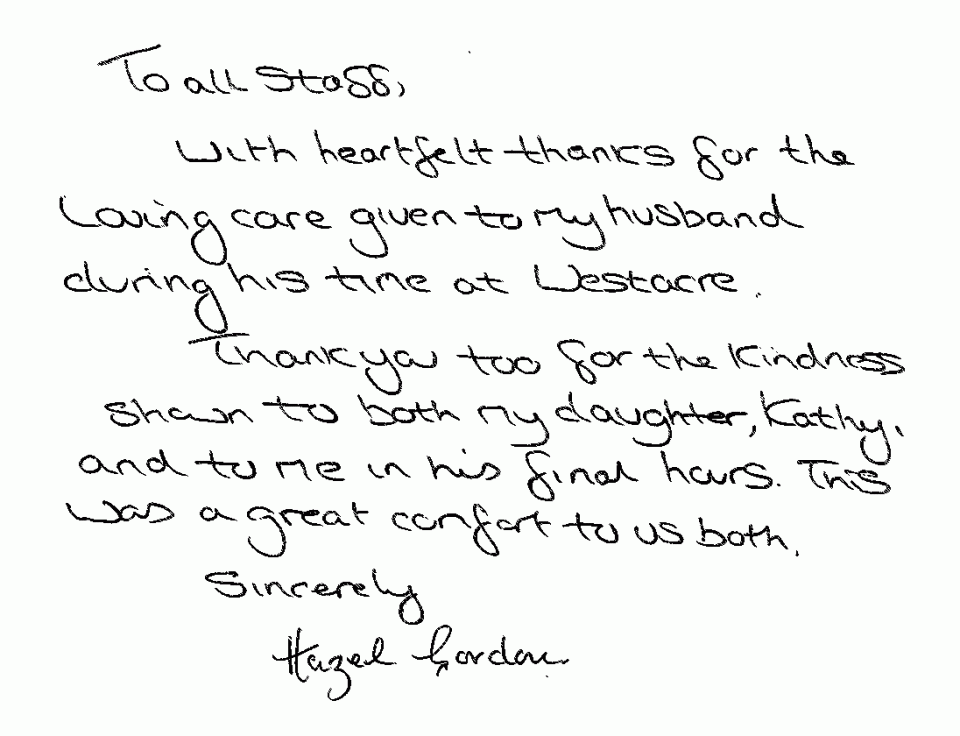 To all Staff,
With heartfelt thanks for the
Loving care given to my husband
during his time at Westacre.
Thank you too for the Kindness
shown to both my daughter, Kathy,
and to me in his final hours. This
was a great comfort to us both.
Sincerely
Hazel Gordon.